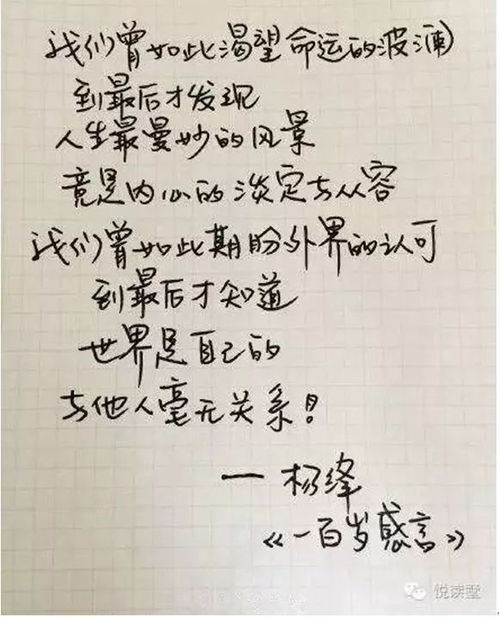 我们曾如此渴望命运的波澜
到最后才发现
人生最曼妙的风景
竟是内心的淡定与从容
我们曾如此期盼外界的认可
到最后才知道
世界是自己的
与他人毫无关系!
— 杨绛
《一百岁感言》
悦读墅